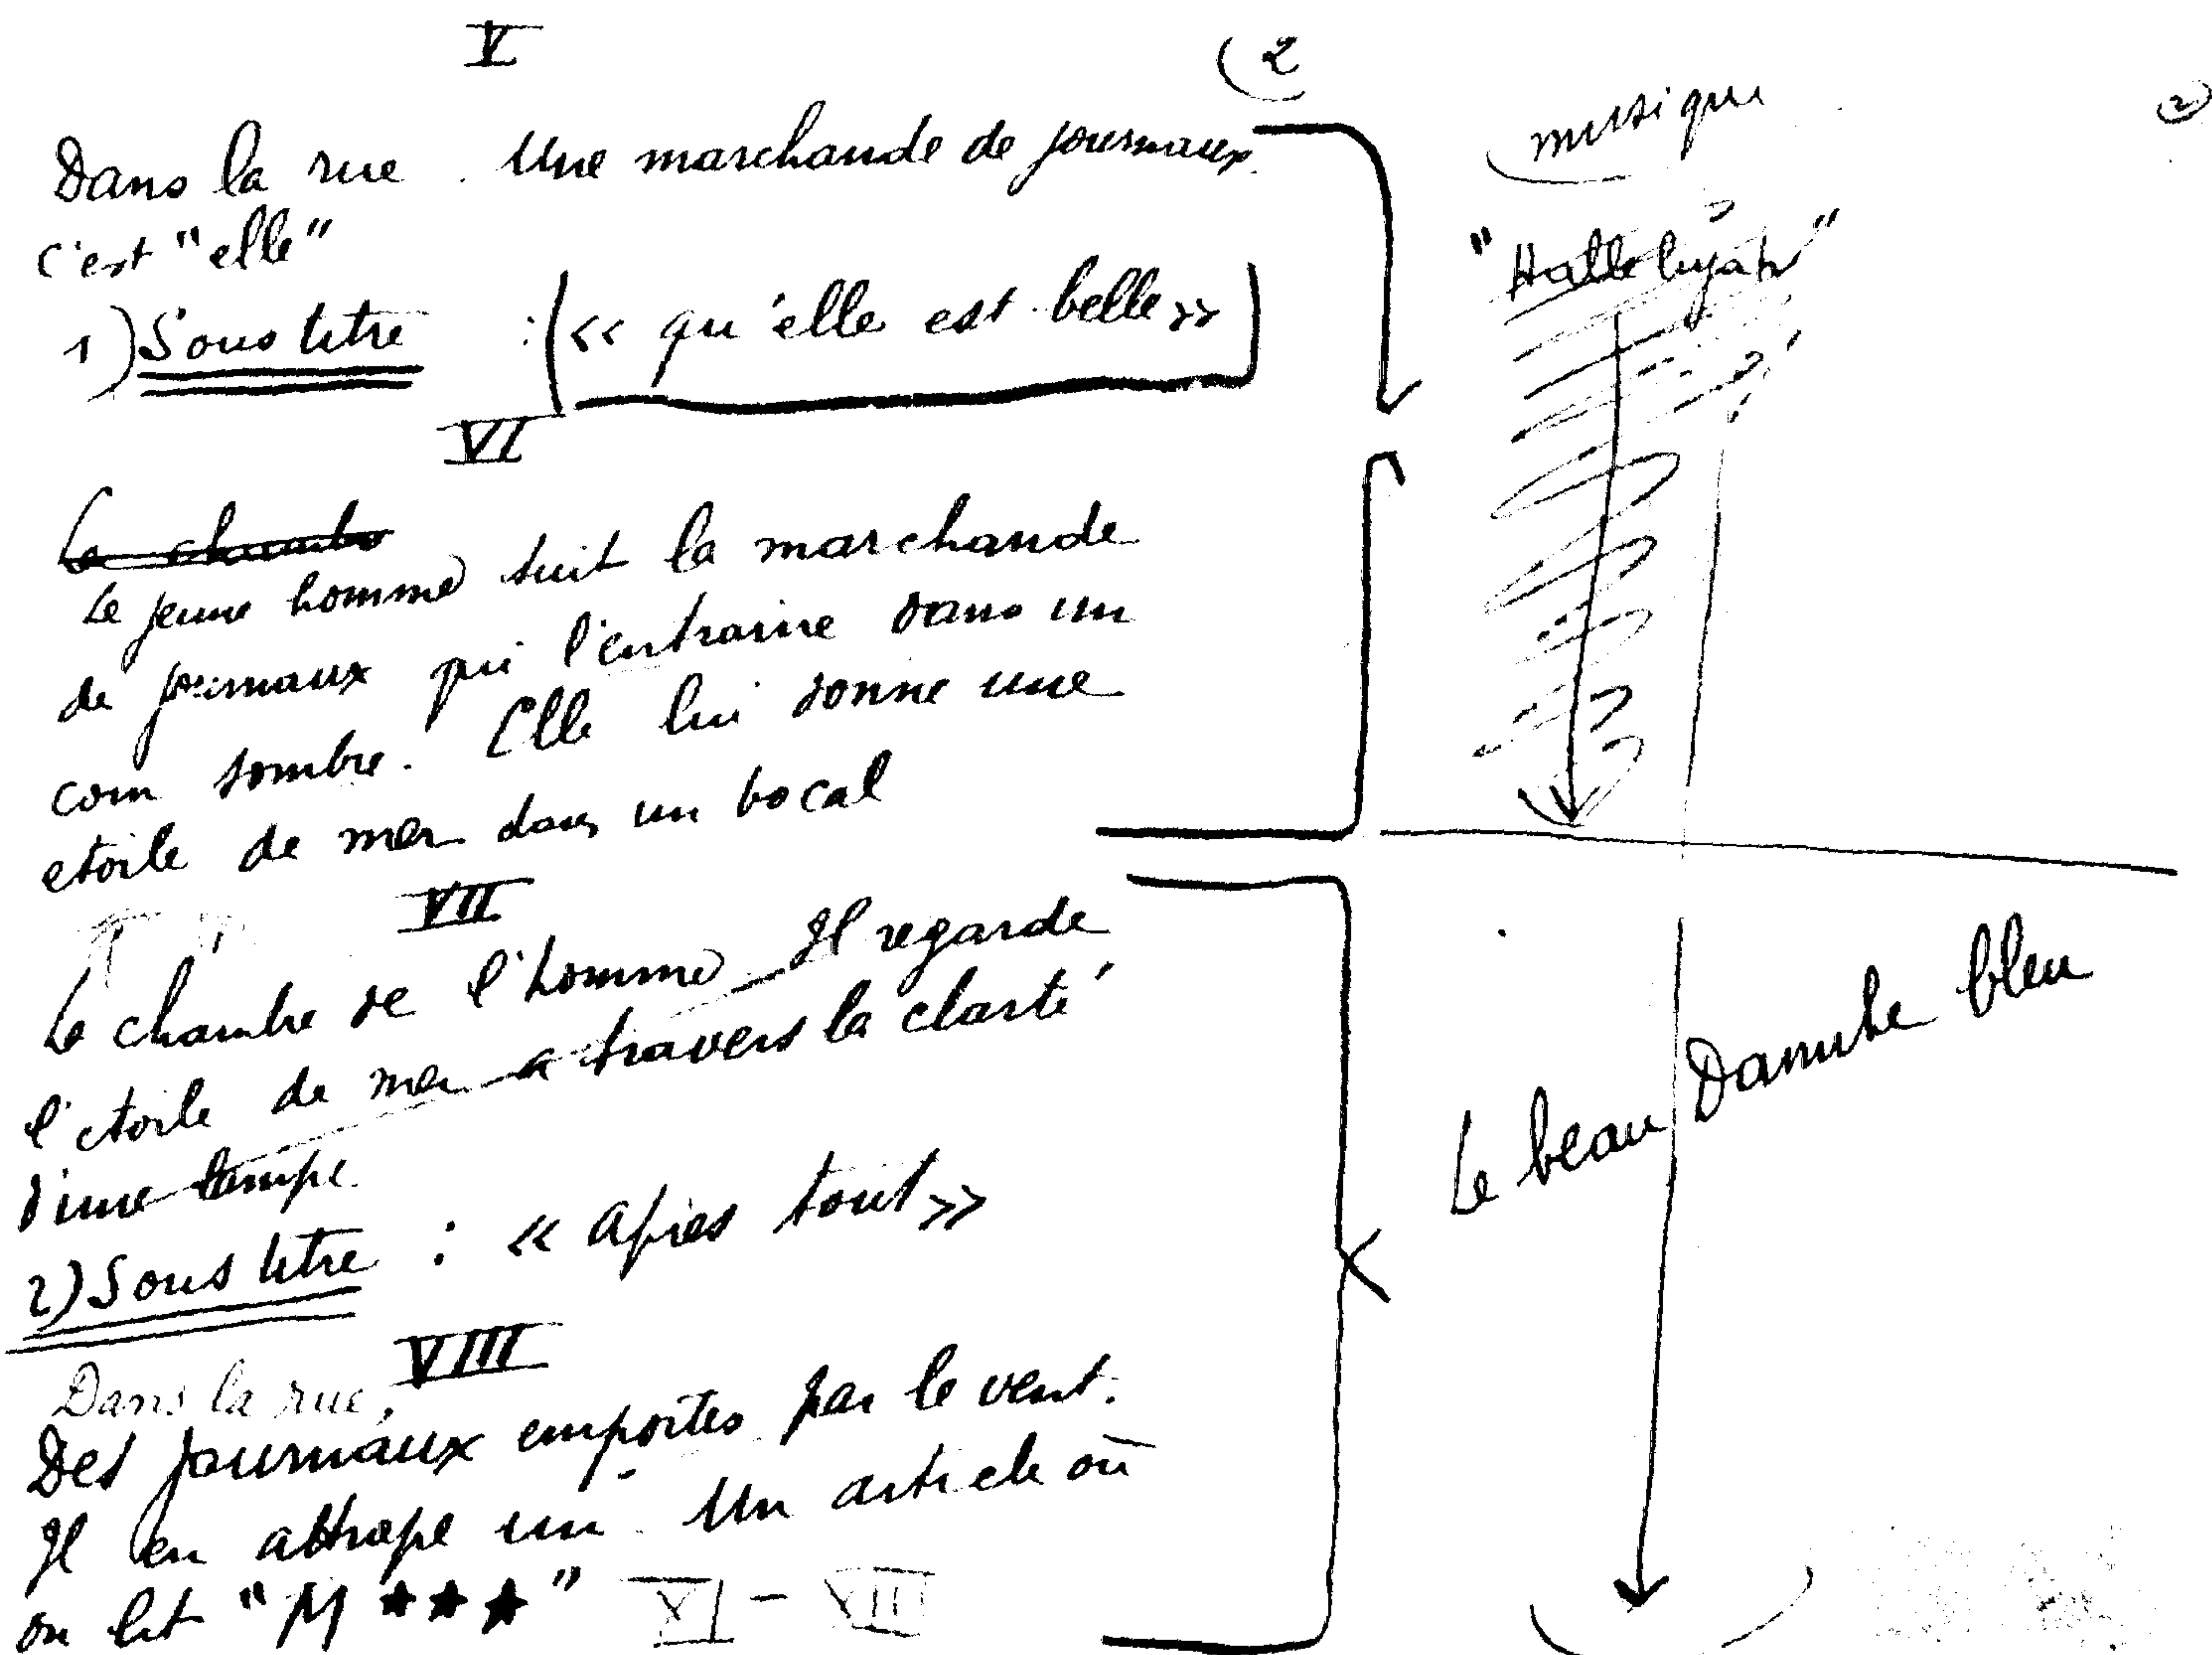 V
2
musique
2
Dans la rue. Une marchande de journaux.
c'est "elle"
"Hallelujah"
1) Sous titre : (<< qu'elle est belle >>)
VI
La chambre
Le jeune homme suit la marchande
de journaux qui l'entraine dans un
coin sombre. Elle lui donne une
etoile de mer dans un bocal
VII
La chambre de l'homme Il regarde
l'etoile de mer a travers la clarté
d'une lampe
Le beau Danube bleu
2) Sous titre : << apres tout >>
VIII
Dans la rue,
Des journaux emportes par le vent.
Il en attrape un. Un article où
on lit "M ★★★" XI - XIII